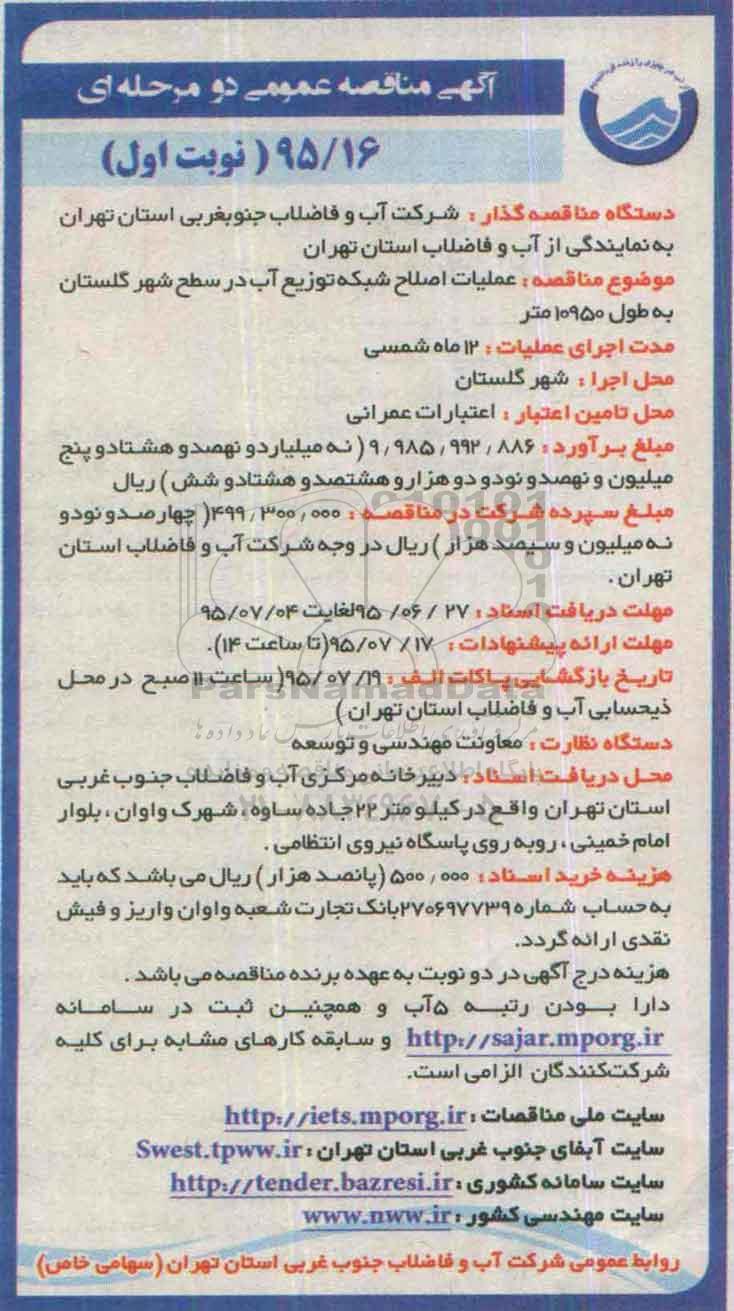 آگهی مناقصه عمومی دو مرحله ای
۹۵/۱۶ ( نوبت اول)
دستگاه مناقصه گذار : شرکت آب و فاضلاب جنوبغربی استان تهران
به نمایندگی از آب و فاضلاب استان تهران
موضوع مناقصه : عملیات اصلاح شبکه توزیع آب در سطح شهر گلستان
به طول ۱۰۹۵۰ متر
مدت اجرای عملیات : ۱۲ ماه شمسی
محل اجرا : شهر گلستان
محل تامین اعتبار : اعتبارات عمرانی
مبلغ برآورد : ۹,۹۸۵,۹۹۲,۸۸۶ ( نه میلیاردو نهصدو هشتادو پنج
میلیون و نهصدو نودو دو هزارو هشتصدو هشتادو شش ) ریال
مبلغ سپرده شرکت در مناقصه : ۴۹۹,۳۰۰,۰۰۰( چهارصدو نودو
نه میلیون و سیصد هزار ) ریال در وجه شرکت آب و فاضلاب استان
تهران .
مهلت دریافت اسناد : ۲۷ / ۰۶/ ۹۵لغایت ۹۵/۰۷/۰۴
مهلت ارائه پیشنهادات : ۱۷ / ۹۵/۰۷(تا ساعت ۱۴).
تاریخ بازگشایی پاکات الف : ۹۵/۰۷/۱۹( ساعت ۱۱ صبح در محل
ذیحسابی آب و فاضلاب استان تهران )
دستگاه نظارت : معاونت مهندسی و توسعه
محل دریافت اسناد : دبیرخانه مرکزی آب و فاضلاب جنوب غربی
استان تهران واقع در کیلو متر ۲۲ جاده ساوه ، شهرک واوان ، بلوار
امام خمینی ، روبه روی پاسگاه نیروی انتظامی .
هزینه خرید اسناد : ۵۰۰,۰۰۰ (پانصد هزار ) ریال می باشد که باید
به حساب شماره ۲۷۰۶۹۷۷۳۹بانک تجارت شعبه واوان واریز و فیش
نقدی ارائه گردد.
هزینه درج آگهی در دو نوبت به عهده برنده مناقصه می باشد .
دارا بودن رتبه ۵آب و همچنین ثبت در سامانه
http://sajar.mporg.ir و سابقه کارهای مشابه برای کلیه
شرکت‌کنندگان الزامی است.
سایت ملی مناقصات : http://iets.mporg.ir
سایت آبفای جنوب غربی استان تهران : Swest.tpww.ir
سایت سامانه کشوری : http://tender.bazresi.ir
سایت مهندسی کشور : www.nww.ir
روابط عمومی شرکت آب و فاضلاب جنوب غربی استان تهران (سهامی خاص)
ParsNamadData